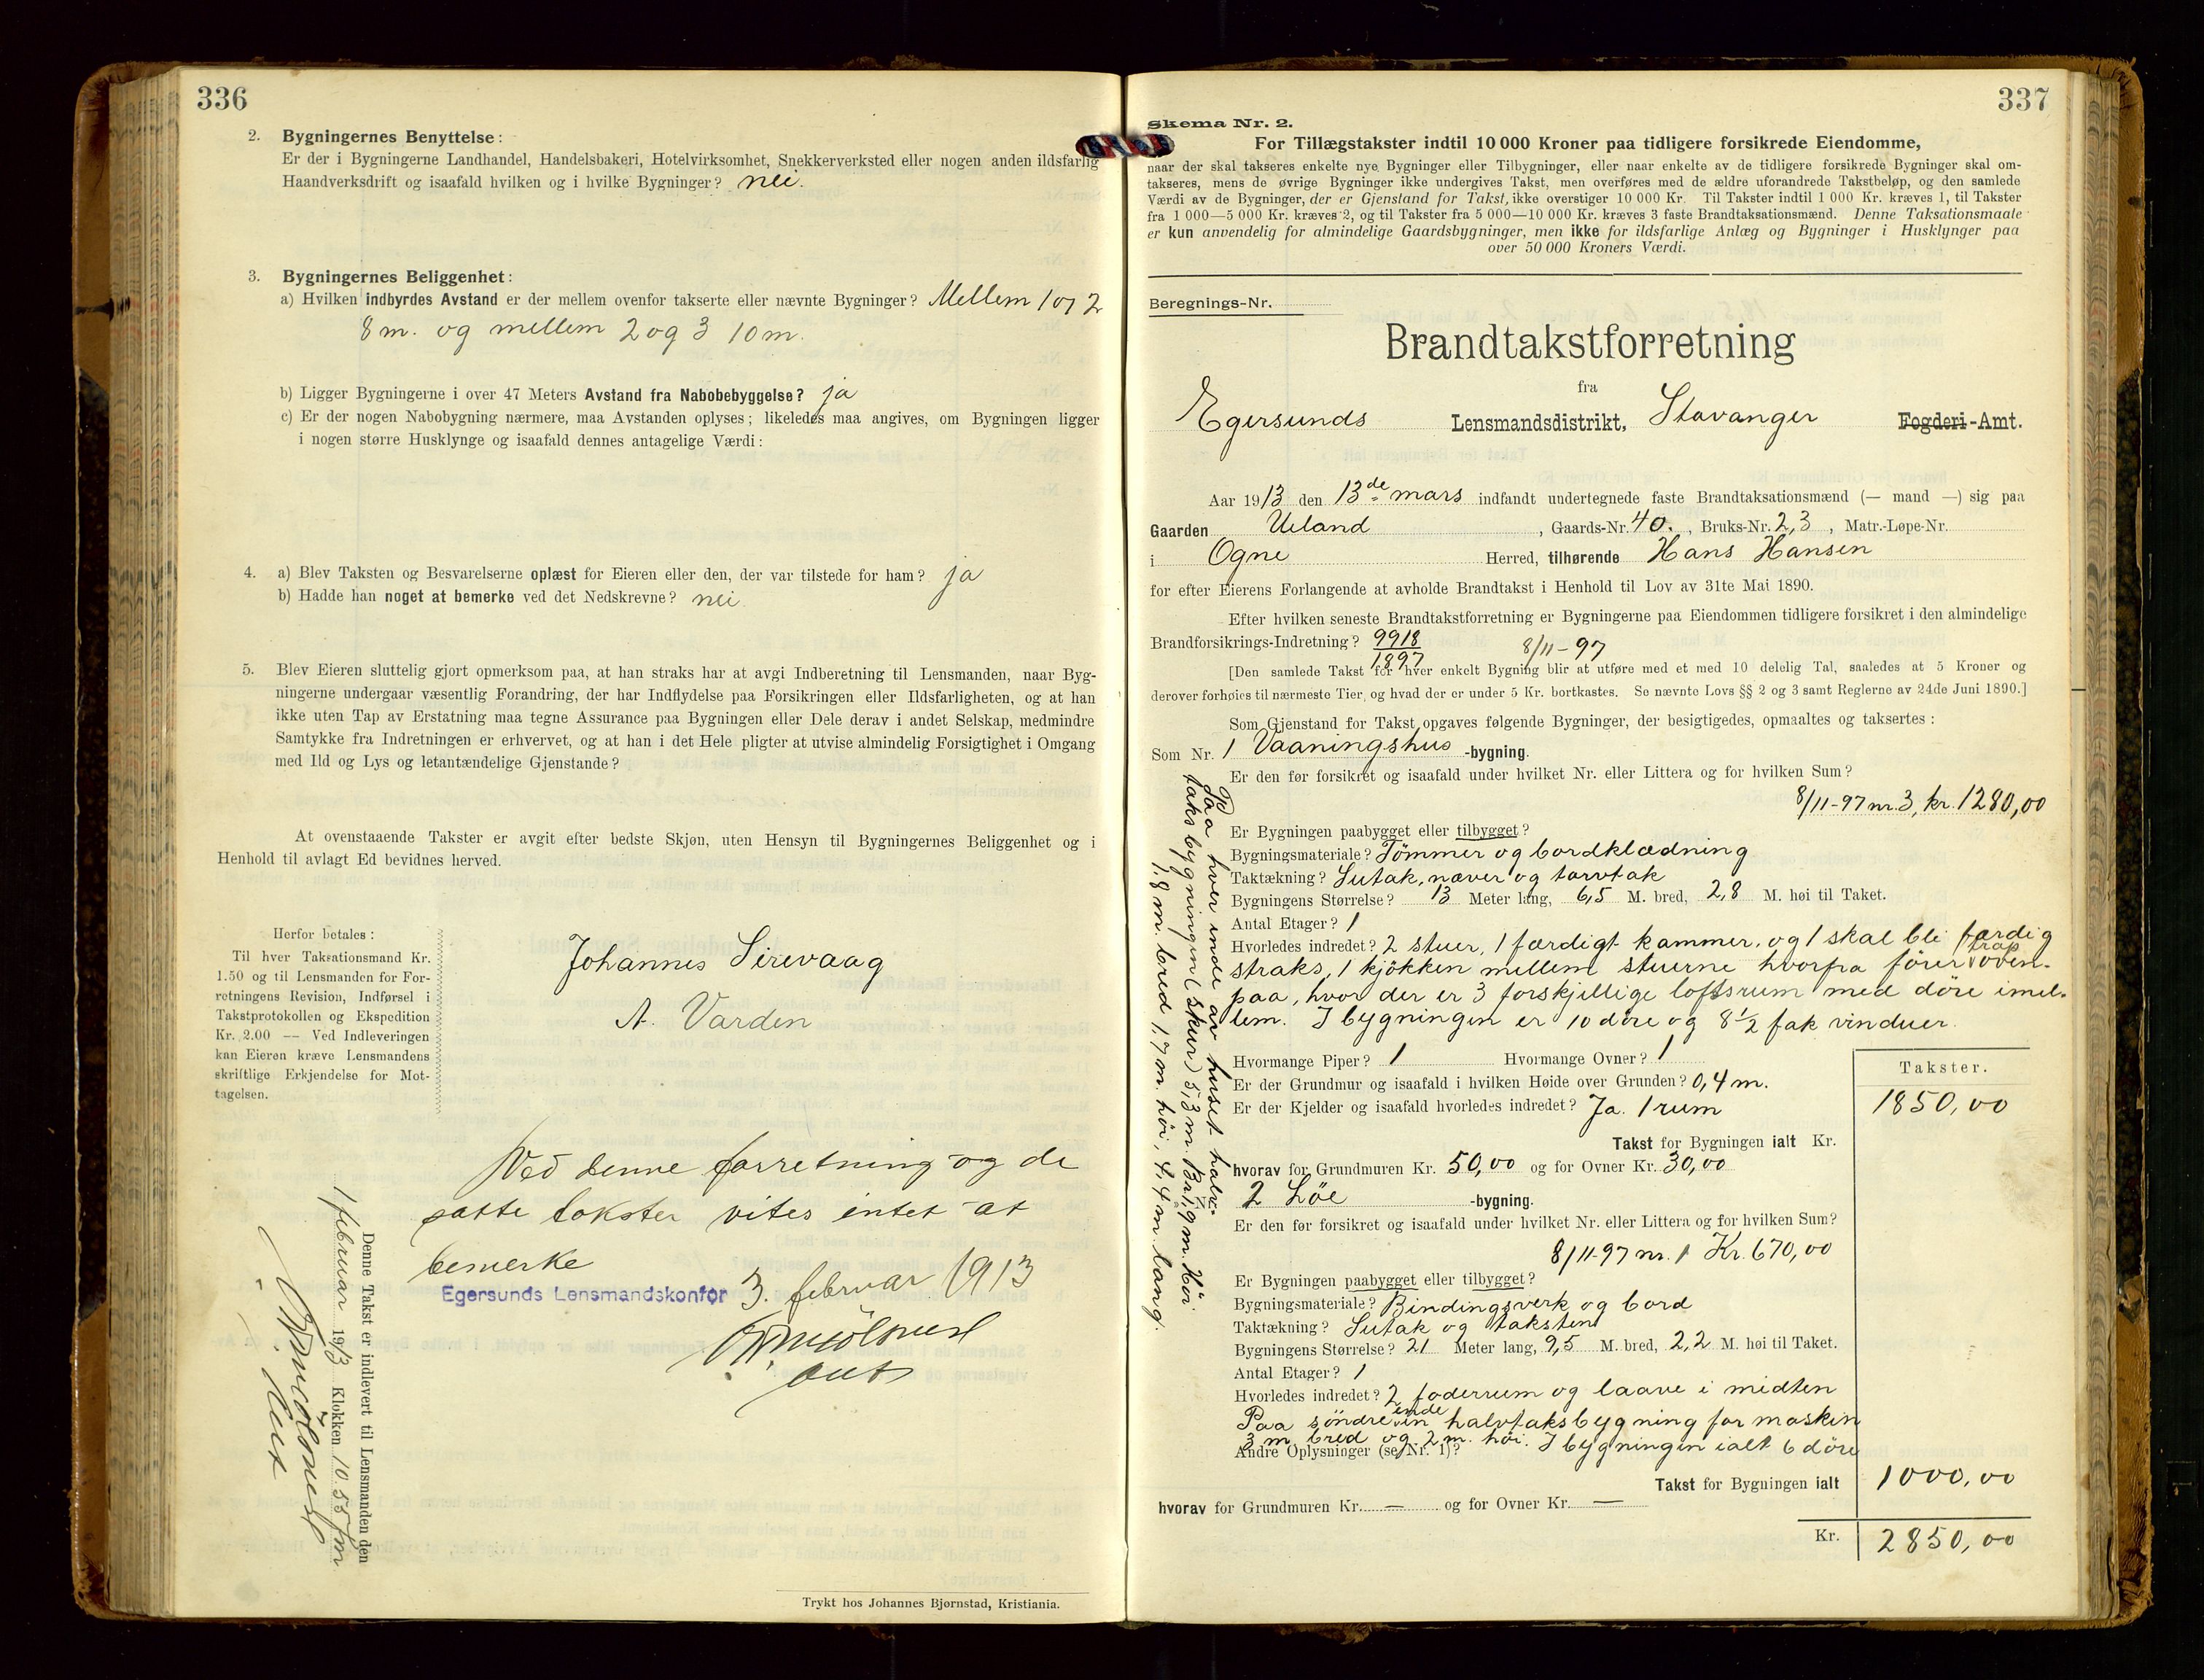 336
2. Bygningernes Benyttelse:
Er der i Bygningerne Landhandel, Handelsbakeri, Hotelvirksomhet, Snekkerverksted eller nogen anden ildsfarlig
Haandverksdrift og isaafald hvilken og i hvilke Bygninger? nei.
3. Bygningernes Beliggenhet:
a) Hvilken indbyrdes Avstand er der mellem ovenfor takserte eller nævnte Bygninger? Mellem 1 og 2
8 m. og mellem 2 og 3 10 m.
b) Ligger Bygningerne i over 47 Meters Avstand fra Nabobebyggelse? ja
c) Er der nogen Nabobygning nærmere, maa Avstanden oplyses; likeledes maa angives, om Bygningen ligger
i nogen større Husklynge og isaafald dennes antagelige Værdi:
4. a) Blev Taksten og Besvarelserne oplæst for Eieren eller den, der var tilstede for ham? ja
b) Hadde han noget at bemerke ved det Nedskrevne? nei
5. Blev Eieren sluttelig gjort opmerksom paa, at han straks har at avgi Indberetning til Lensmanden, naar Byg-
ningerne undergaar væsentlig Forandring, der har Indflydelse paa Forsikringen eller Ildsfarligheten, og at han
ikke uten Tap av Erstatning maa tegne Assurance paa Bygningen eller Dele derav i andet Selskap, medmindre
Samtykke fra Indretningen er erhvervet, og at han i det Hele pligter at utvise almindelig Forsigtighet i Omgang
med Ild og Lys og letantændelige Gjenstande?
At ovenstaaende Takster er avgit efter bedste Skjøn, uten Hensyn til Bygningernes Beliggenhet og i
Henhold til avlagt Ed bevidnes herved.
Herfor betales:
Til hver Taksationsmand Kr.
1.50 og til Lensmanden for For-
retningens Revision, Indførsel i
Takstprotokollen og Ekspedition
Kr. 2.00 — Ved Indleveringen
kan Eieren kræve Lensmandens
skriftlige Erkjendelse for Mot-
tagelsen.
Johannes Sirevaag
A. Varden
Ved denne forretning og de
satte takster vites intet at
bemerke
Egersunds Lensmandskontor 3. februar 1913
Denne Takst er indlevert til Lensmanden den
1 februar 1913 Klokken 10.55 fm
Trykt hos Johannes Bjørnstad, Kristiania.
337
Skema Nr. 2.
For Tillægstakster indtil 10 000 Kroner paa tidligere forsikrede Eiendomme,
naar der skal takseres enkelte nye Bygninger eller Tilbygninger, eller naar enkelte av de tidligere forsikrede Bygninger skal om-
takseres, mens de øvrige Bygninger ikke undergives Takst, men overføres med de ældre uforandrede Takstbeløp, og den samlede
Værdi av de Bygninger, der er Gjenstand for Takst, ikke overstiger 10 000 Kr. Til Takster indtil 1 000 Kr. kræves 1, til Takster
fra 1 000—5 000 Kr. kræves 2, og til Takster fra 5 000—10 000 Kr. kræves 3 faste Brandtaksationsmænd. Denne Taksationsmaate
er kun anvendelig for almindelige Gaardsbygninger, men ikke for ildsfarlige Anlæg og Bygninger i Husklynger paa
over 50 000 Kroners Værdi.
Beregnings-Nr.
Brandtakstforretning
fra
Egersunds Lensmandsdistrikt, Stavanger Fogderi-Amt.
Aar 1913 den 13de mars indfandt undertegnede faste Brandtaksationsmænd (— mand —) sig paa
Gaarden Ueland, Gaards-Nr. 40., Bruks-Nr. 2,3, Matr.-Løpe-Nr.
i Ogne Herred, tilhørende Hans Hansen
for efter Eierens Forlangende at avholde Brandtakst i Henhold til Lov av 31te Mai 1890.
Efter hvilken seneste Brandtakstforretning er Bygningerne paa Eiendommen tidligere forsikret i den almindelige
Brandforsikrings-Indretning? 9918/1897 8/11-97
[Den samlede Takst for hver enkelt Bygning blir at utføre med et med 10 delelig Tal, saaledes at 5 Kroner og
derover forhøies til nærmeste Tier, og hvad der er under 5 Kr. bortkastes. Se nævnte Lovs §§ 2 og 3 samt Reglerne av 24de Juni 1890.]
Som Gjenstand for Takst opgaves følgende Bygninger, der besigtigedes, opmaaltes og taksertes:
Som Nr. 1 Vaaningshus -bygning.
Er den før forsikret og isaafald under hvilket Nr. eller Littera og for hvilken Sum?
8/11-97 nr. 3, kr. 1280,00
Er Bygningen paabygget eller tilbygget?
Bygningsmateriale? Tømmer og bordklædning
Taktækning? Sutak, næver og torvtak
Bygningens Størrelse? 13 Meter lang, 6,5 M. bred, 2,8 M. høi til Taket.
Antal Etager? 1
Hvorledes indredet? 2 stuer, 1 færdigt kammer, og 1 skal bli færdig
straks, 1 kjøkken mellem stuerne hvorfra fører trap oven-
paa, hvor der er 3 forskjellige loftsrum med døre imel-
lem. I bygningen er 10 døre og 8 1/2 fak vinduer.
Hvormange Piper? 1 Hvormange Ovner? 1
Er der Grundmur og isaafald i hvilken Høide over Grunden? 0,4 m.
Er der Kjelder og isaafald hvorledes indredet? Ja. 1 rum
Takster.
1850,00
Takst for Bygningen ialt Kr.
hvorav for Grundmuren Kr. 50,00 og for Ovner Kr. 30,00
2 Löe -bygning.
Er den før forsikret og isaafald under hvilket Nr. eller Littera og for hvilken Sum?
8/11-97 nr. 1 Kr. 670,00
Er Bygningen paabygget eller tilbygget?
Bygningsmateriale? Bindingsverk og bord
Taktækning? Sutak og taksten
Bygningens Størrelse? 21 Meter lang, 9,5 M. bred, 2,2 M. høi til Taket.
Antal Etager? 1
Hvorledes indredet? 2 foderrum og laave i midten
Paa söndre ende en halvtaksbygning for maskin
3 m bred og 2 m. høi. I bygningen ialt 6 döre
Andre Oplysninger (se Nr. 1)?
Takst for Bygningen ialt 1000,00
hvorav for Grundmuren Kr. — og for Ovner Kr. —
Kr. 2850,00
Paa hver ende av huset halv-
taksbygningen (skur) 5,3 m. Br. 1,9 m. Höi
1,8 m. bred 1,7 m. høi, 4,4 m. lang.